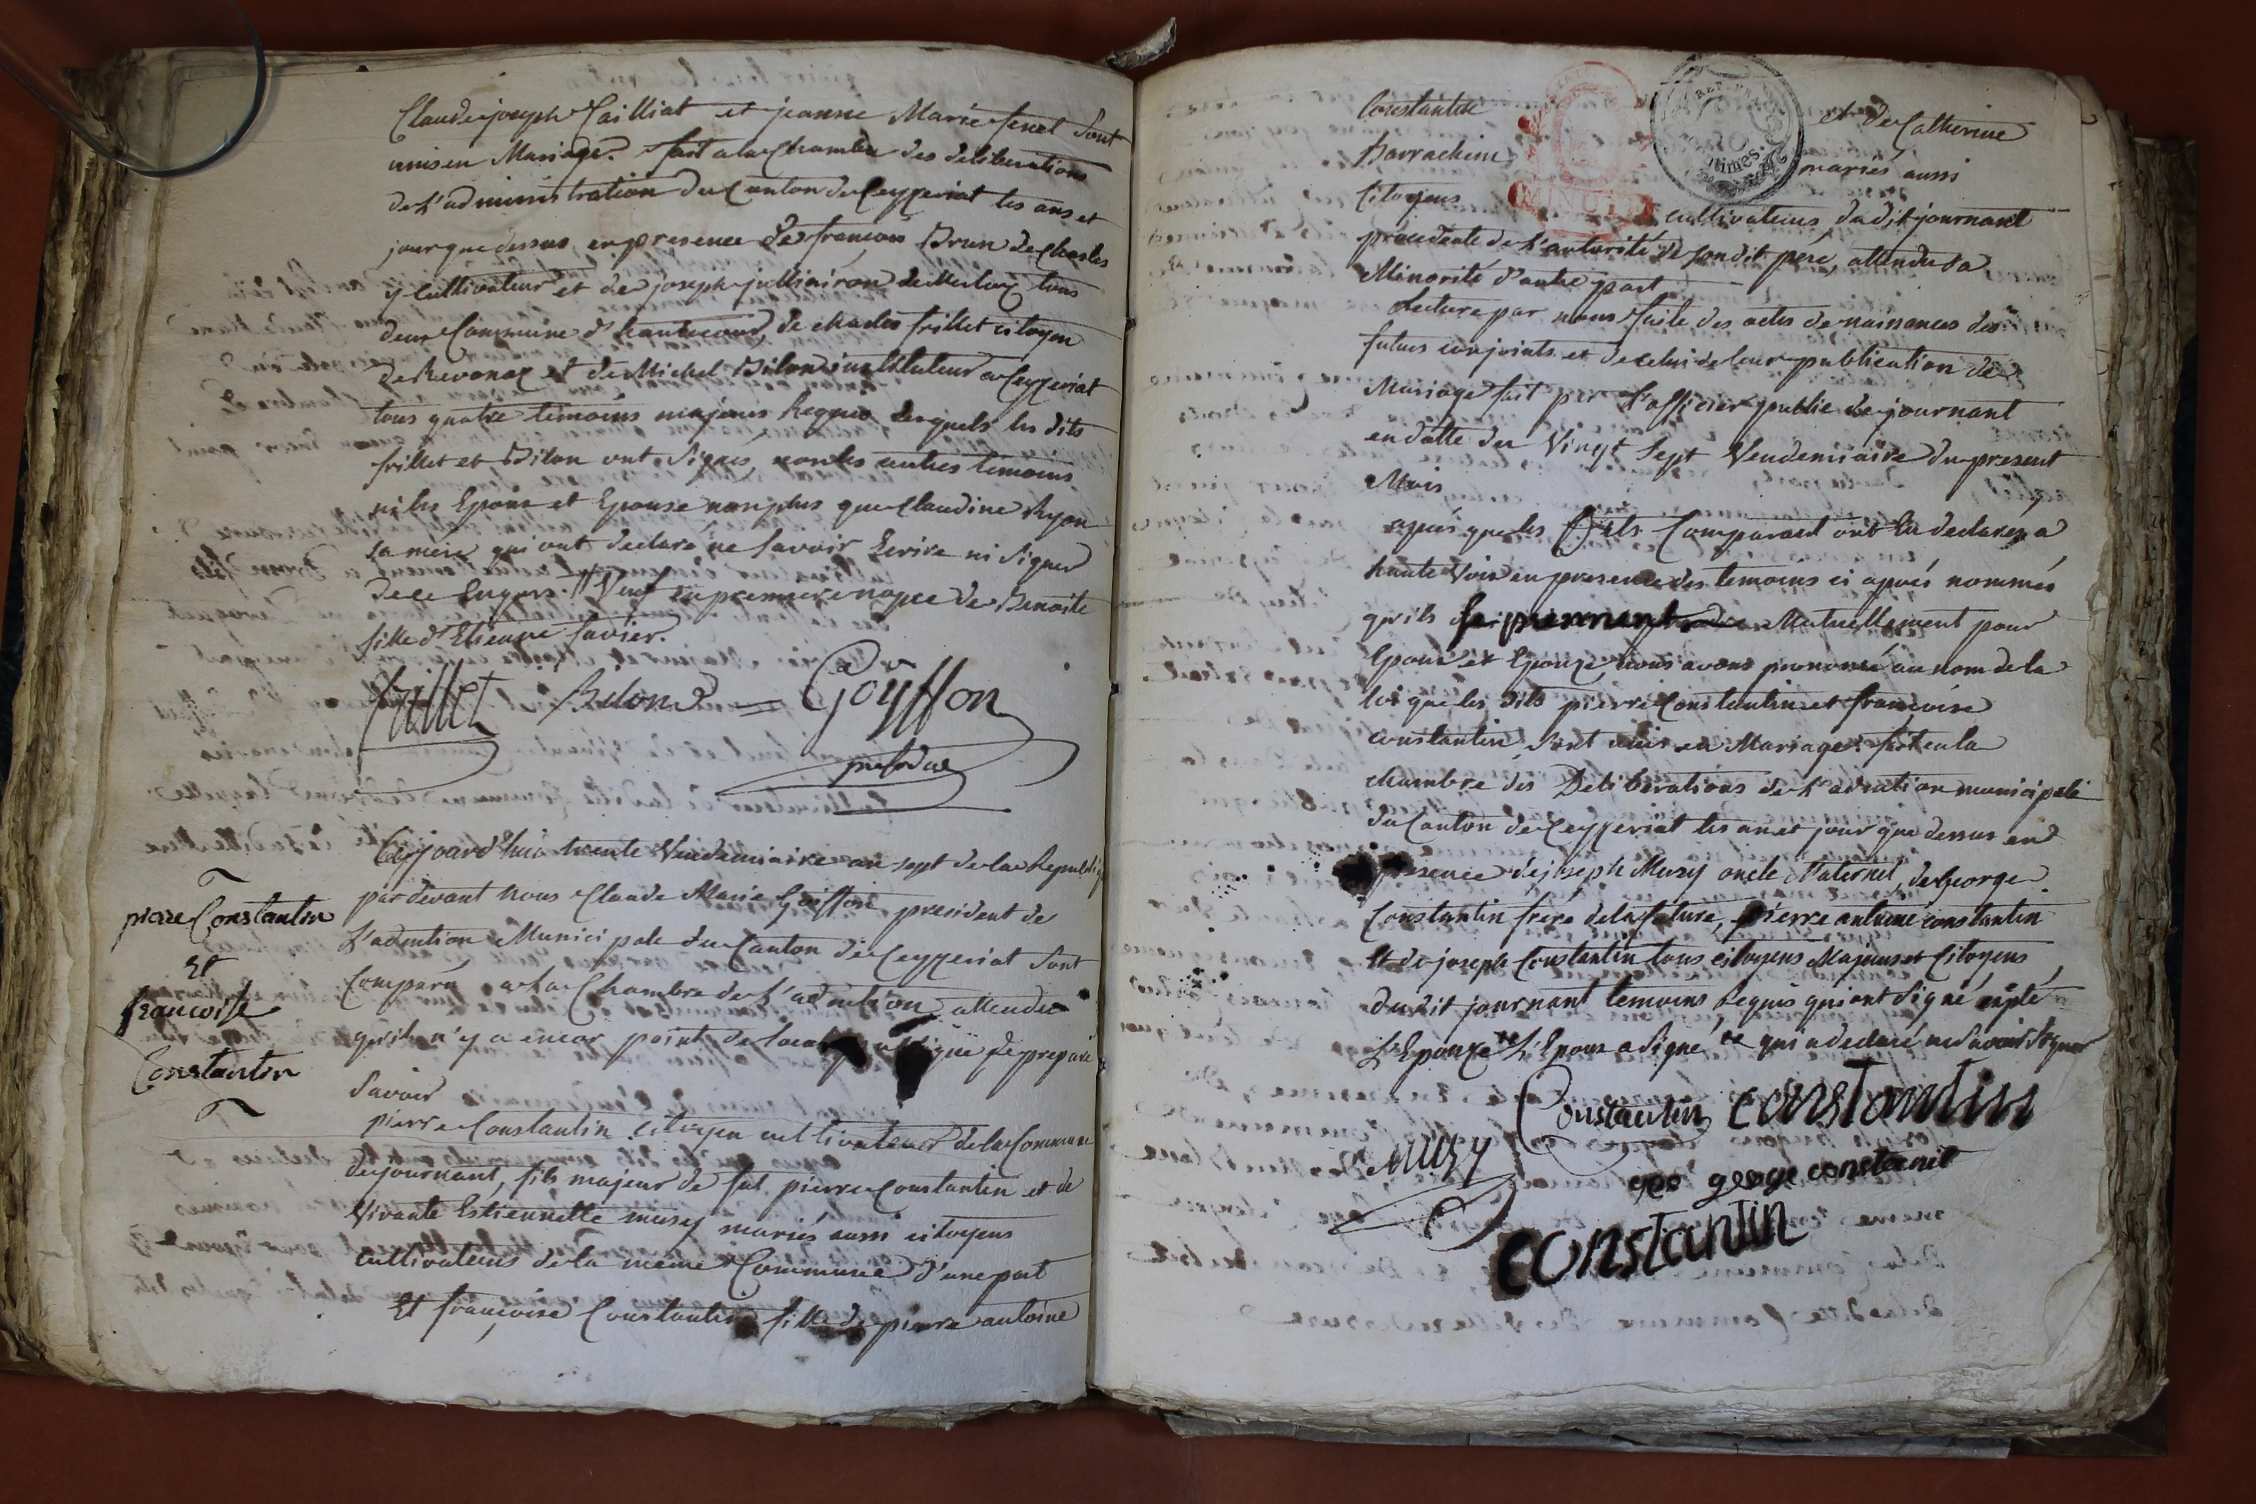 Claude joseph Cailliat et jeanne Marie fenet sont
unis en Mariage. fait a la Chambre des deliberations
de l'administration du Canton de Ceyzeriat les ans et
jour que dessus en presence de francois Brun de Charles
y Cultivateur et de joseph jullieiron de Merloz tous
deux Commune d'hautecour, de charles frillet citoyen
de Revonaz et de Michel Bilon instituteur a Ceyzeriat
tous quatre temoins majeurs Requis desquels les dits
frillet et Bilon ont signés, non les autres temoins
ni les Epoux et Epouse non plus que Claudine Ryon
sa mere qui ont declaré ne savoir Ecrire ni signer
de ce Enquis. Veuf en premiere nopce de Benoite
fille d'Etienne favier.
frillet Bilon Goÿffon
president
Cejourd'hui trente Vendemiaire an sept de la Republiq
par devant nous Claude Marie Goiffon president de
L'adm̃tion Municipale du Canton de Ceyzeriat sont
Comparu a la Chambre de l'adm̃tion attendu
qu'il n'y a encor point de local préparé
savoir
pierre Constantin
Et
francoise
Constantin
pierre Constantin citoyen cultivateur de la Commune
de journant, fils majeur de fut pierre Constantin et de
Vivante Estiennette musy mariés aussi citoyens
cultivateurs de la meme Commune d'une part
Et françoise Constantin fille de pierre antoine
Constantin et de Catherine
Barrachin mariés aussi
Citoyens cultivateurs dudit journant
procedente de l'autorité de sondit pere, attendu sa
Minorité d'autre part
Lecture par nous faite des actes de naissances des
futurs conjoints et de celui de leur publication de
Mariage fait par l'officier public de journant
en datte du Vingt sept Vendemiaire du present
Mois
après que les Dits Comparant ont eu declarez a
haute voix en presence des temoins ci après nommés
qu'ils se prennent Mutuellement pour
Epoux et Epouze nous avons prononcé au nom de la
loi que les dits pierre Constantin et francoise
constantin sont unis en Mariage. fait en la
chambre des Deliberations de l'adm̃ation municipale
du Canton de Ceyzeriat les an et jour que dessus en
presence de joseph Musy oncle Paternel, de George
Constantin frere de la future, pierre antoine constantin
Et de joseph Constantin tous citoyens Majeurs et Citoyens
dudit journant temoins Requis qui ont signé exepté
L'Epouze L'Epoux a signé qui a declaré ne savoir signer
Constantin constantin
Musy
geo george constantit
constantin